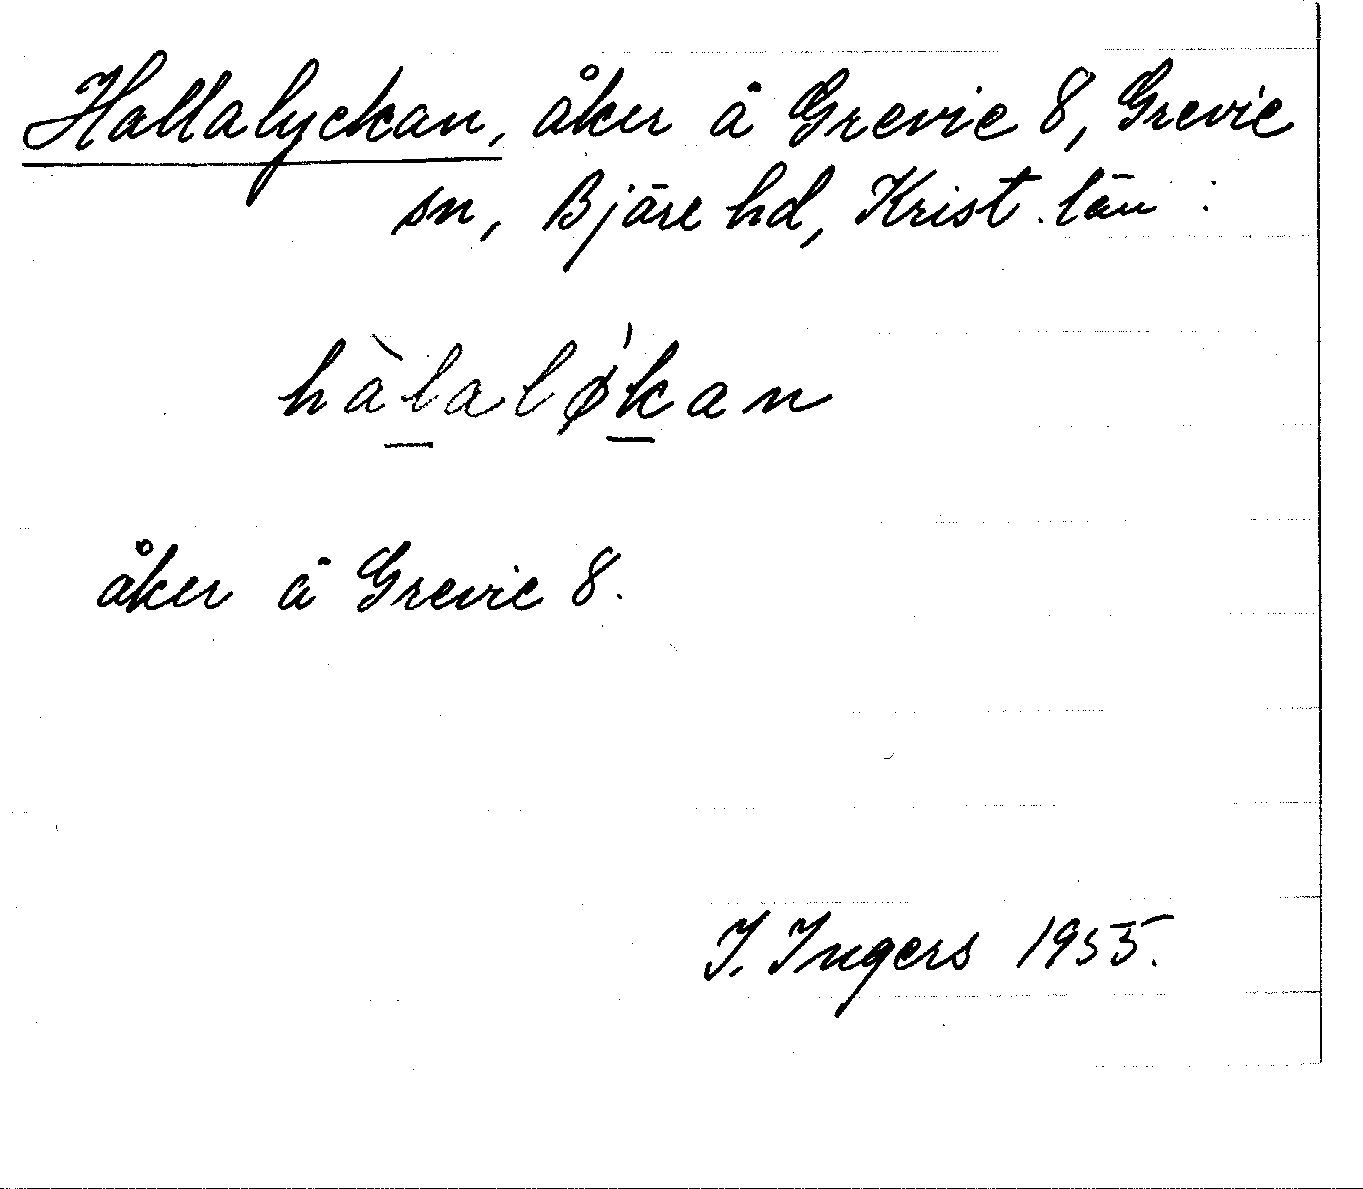 Hallalyckan, åker å Grevie 8, Grevie
sn, Bjäre hd, Krist. län:
hàl̲alǿk̲an
åker å Grevie 8.
I. Ingers 1955.